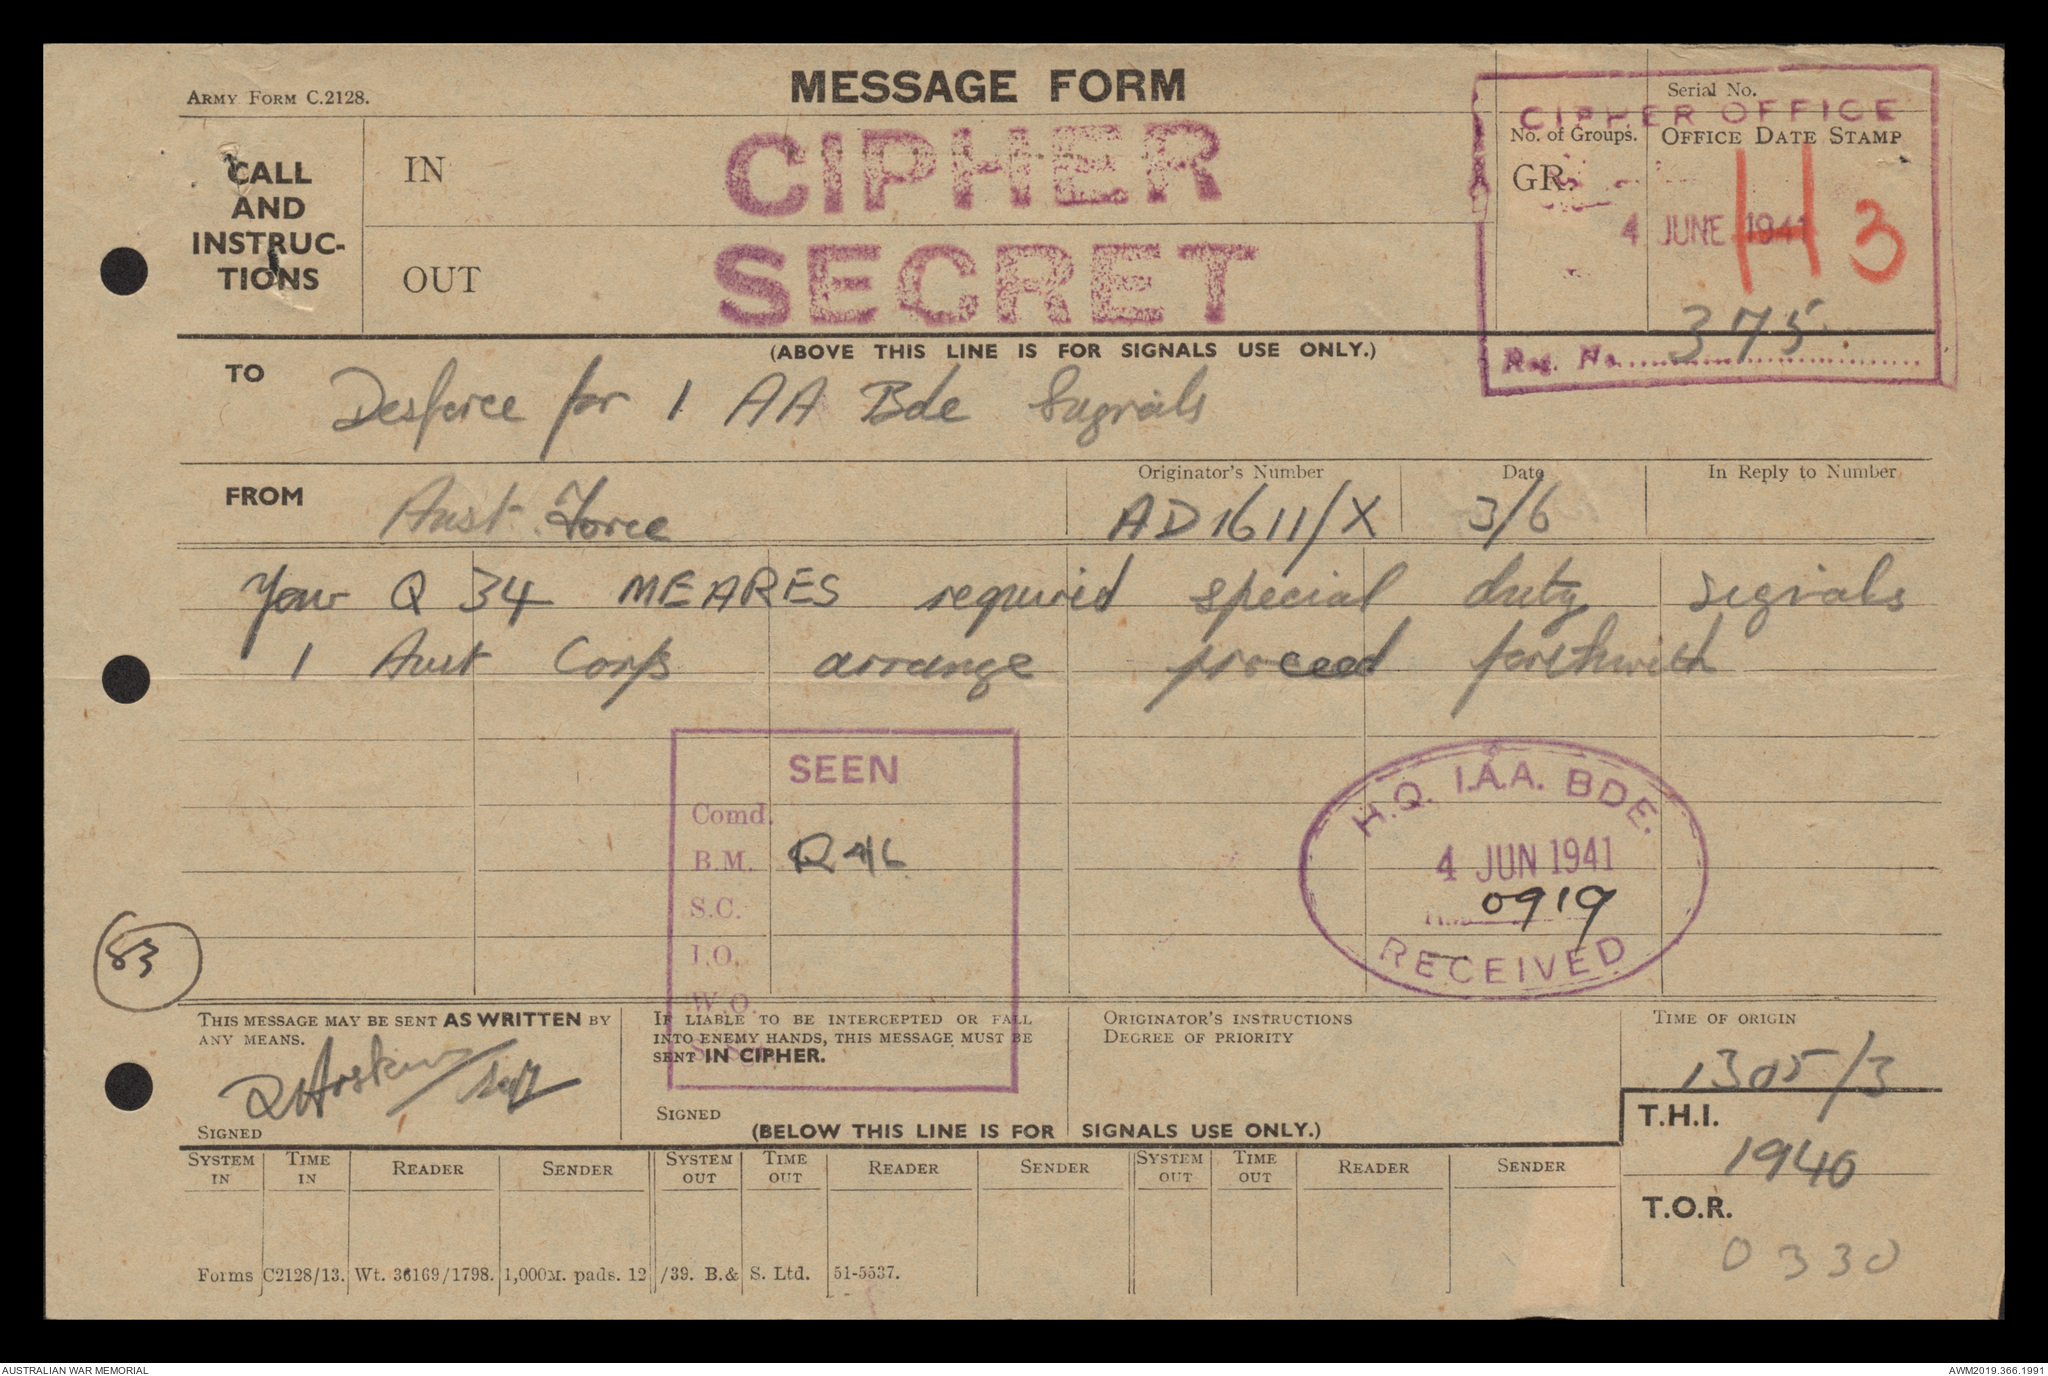 ARMY FORM C.2128.
MESSAGE FORM
Serial No.
CIPHER OFFICE
No. of Groups. OFFICE DATE STAMP
GR.
CALL AND INSTRUC-TIONS
IN
OUT
CIPHER
SECRET
4 JUNE 1941
H3
375
Reg. No.
(ABOVE THIS LINE IS FOR SIGNALS USE ONLY.)
TO
Desforce for 1 AA Bde Signals
FROM
Aust Force
Originator's Number
AD1611/X
Date
3/6
In Reply to Number
Your Q 34 MEARES required special duty signals
1 Aust Corps arrange proceed forthwith
SEEN
Comd.
B.M.
S.C.
I.O.
W.O.
H.Q. 1.A.A. BDE.
4 JUN 1941
0919
RECEIVED
83
THIS MESSAGE MAY BE SENT AS WRITTEN BY
ANY MEANS.
SIGNED
IF LIABLE TO BE INTERCEPTED OR FALL
INTO ENEMY HANDS, THIS MESSAGE MUST BE
SENT IN CIPHER.
SIGNED
ORIGINATOR'S INSTRUCTIONS
DEGREE OF PRIORITY
TIME OF ORIGIN
1305/3
T.H.I.
1940
T.O.R.
0330
(BELOW THIS LINE IS FOR SIGNALS USE ONLY.)
SYSTEM IN TIME IN READER SENDER SYSTEM OUT TIME OUT READER SENDER SYSTEM OUT TIME OUT READER SENDER
Forms C2128/13. Wt. 36169/1798. 1,000M. pads. 12/39. B.& S. Ltd. 51-5537.
AUSTRALIAN WAR MEMORIAL
AWM2019.366.1991